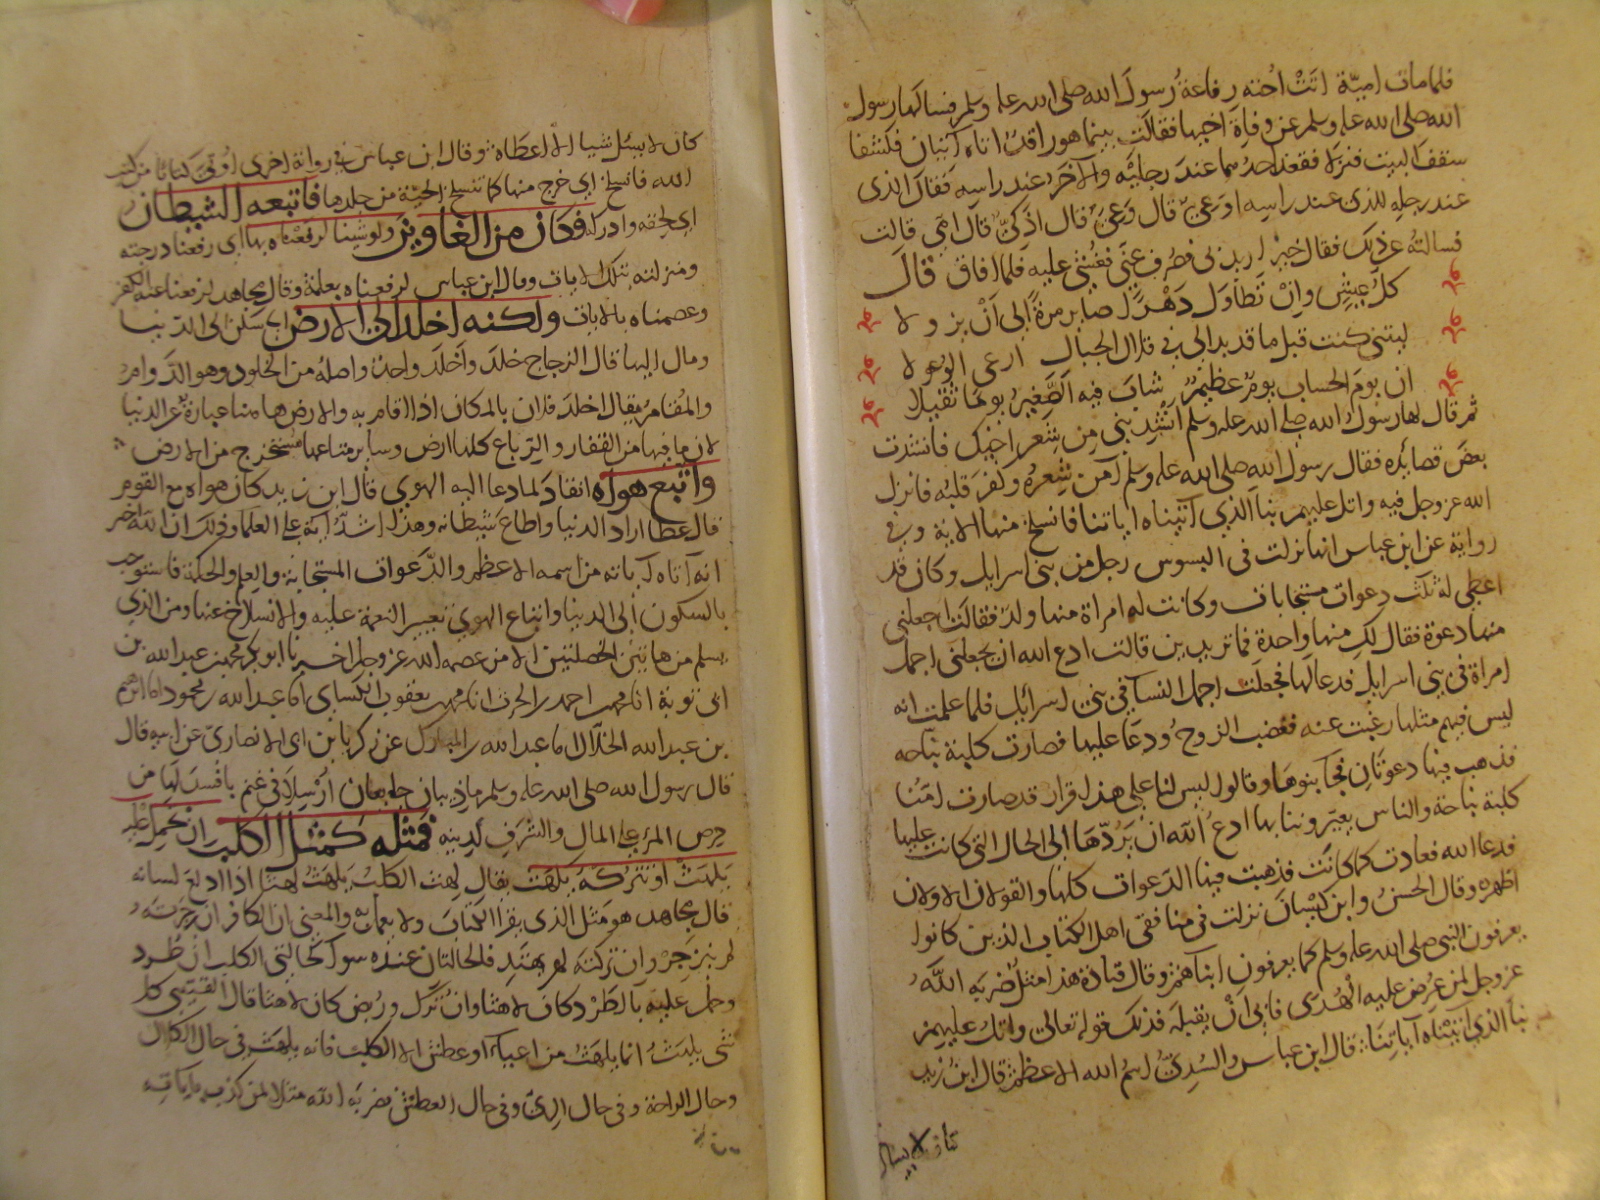 فلما مات امية اتت اخته رفاعة رسول الله صلى الله عليه وسلم فسالها رسول
الله صلى الله عليه وسلم عن وفاة اخيها فقالت بينما هو راقد اتاه آتيان فكشفا
سقف البيت فنزلا فقعد احدهما عند رجليه والآخر عند راسه فقال الذى
عند رجله للذى عند راسه اوعى قال وعى قال اذكى قال ابى قالت
فسالته عن ذلك فقال خير اريد بى فصرف عنى فغشى عليه فلما افاق قال
كل عيش وان تطاول دهرا صاير مرة الى ان يزولا
ليتنى كنت قبل ما قد بدا لى فى قلال الجبال ارعى الوعولا
ان يوم الحساب يوم عظيم شاب فيه الصغير يوما ثقيلا
ثم قال لها رسول الله صلى الله عليه وسلم انشدينى من شعر اخيك فانشدت
بعض قصايده فقال رسول الله صلى الله عليه وسلم آمن شعره وكفر قلبه فانزل
الله عز وجل فيه واتل عليهم نبا الذى آتيناه اياتنا فانسلخ منها الاية وفى
رواية عن ابن عباس انها نزلت فى البسوس رجل من بنى اسرايل وكان قد
اعطى له ثلث دعوات مستجابات وكانت له امراة منها ولد فقالت اجعل لى
منها دعوة فقال لك منها واحدة فما تريدين قالت ادع الله ان يجعلنى اجمل
امراة فى بنى اسرايل فدعا لها فجعلت اجمل النسا فى بنى اسرائل فلما علمت انه
ليس فيهم مثلها رغبت عنه فغضب الزوج ودعا عليها فصارت كلبة نباحه
فذهب فيها دعوتان فجا بنوها وقالوا ليس لنا على هذا قرار قد صارت امنا
كلبة نباحة والناس يعيروننا بها ادع الله ان يردها الى الحال التى كانت عليها
فدعا الله فعادت كما كانت فذهبت فيها الدعوات كلها والقولان الاولان
اظهره وقال الحسن وابن كيسان نزلت فى منافقى اهل الكتاب الذين كانوا
يعرفون النبى صلى الله عليه وسلم كما يعرفون ابناهم وقال قتادة هذا مثل ضربه الله
عز وجل لمن عرض عليه الهدى فابى ان يقبله فذلك قوله تعالى واتل عليهم
نبأ الذى آتيناه آياتنا قال ابن عباس والسدى اسم الله الاعظم قال ابن زيد
كان لا يسال
كان لا يسئل شيا الا اعطاه وقال ابن عباس فى رواية اخرى اوتى كتابا من كتب
الله فانسلخ اى خرج منها كما تنسلخ الحية من جلدها فاتبعه الشيطان
اى لحقه وادركه فكان من الغاوين ولو شينا لرفعناه بها اى رفعنا درجته
ومنزلته بتلك الايات وقال ابن عباس لرفعناه بعلمه وقال مجاهد لرفعنا عنه الكفر
وعصمناه بالايات ولكنه اخلد الى الارض اى سكن الى الدنيا
ومال اليها قال الزجاج خلد واخلد واحد واصله من الخلود وهو الدوام
والمقام يقال اخلد فلان بالمكان اذا اقام به والارض هاهنا عبارة عن الدنيا
لان ما فيها من القفار والرباع كلها ارض وساير متاعها مستخرج من الارض
واتبع هواه انقاد لما دعا اليه الهوى قال ابن زيد كان هواه مع القوم
قال عطا اراد الدنيا واطاع شيطانه وهذا اشد اية على العلما وذلك ان الله اخبر
انه آتاه آياته من اسمه الاعظم والدعوات المستجابة والعلم والحكمة فاستوجب
بالسكون الى الدنيا واتباع الهوى تغيير النعمة عليه والانسلاخ عنها ومن الذى
يسلم من هاتين الخصلتين الا من عصمه الله عز وجل اخبرنا ابو بكر محمد بن عبد الله بن
ابى توبة انا محمد بن احمد بن الحرث انا محمد بن يعقوب الكساى انا عبد الله بن محمود انا ابراهيم
بن عبد الله الخلال انا عبد الله بن المبارك عن زكريا بن ابى الانصارى عن ابيه قال
قال رسول الله صلى الله عليه وسلم ما ذيبان جايعان ارسلا فى غنم بافسد لها من
حرص المرء على المال والشرف لدينه فمثله كمثل الكلب ان تحمل عليه
يلهث او تتركه يلهث يقال لهث الكلب يلهث لهثا اذا ادلع لسانه
قال مجاهد هو مثل الذى يقرا الكتاب ولا يعمل به والمعنى ان الكافر ان زجرته
لم ينزجر وان تركته لم يهتد فالحالتان عنده سوا كحالتى الكلب ان طرد
وحمل عليه بالطرد كان لاهثا وان ترك وربض كان لاهثا قال القتيبى كل
شى يلهث انما يلهث من اعياء او عطش الا الكلب فانه يلهث فى حال الكلال
وحال الراحة وفى حال الرى وفى حال العطش فضربه الله مثلا لمن كذب باياته